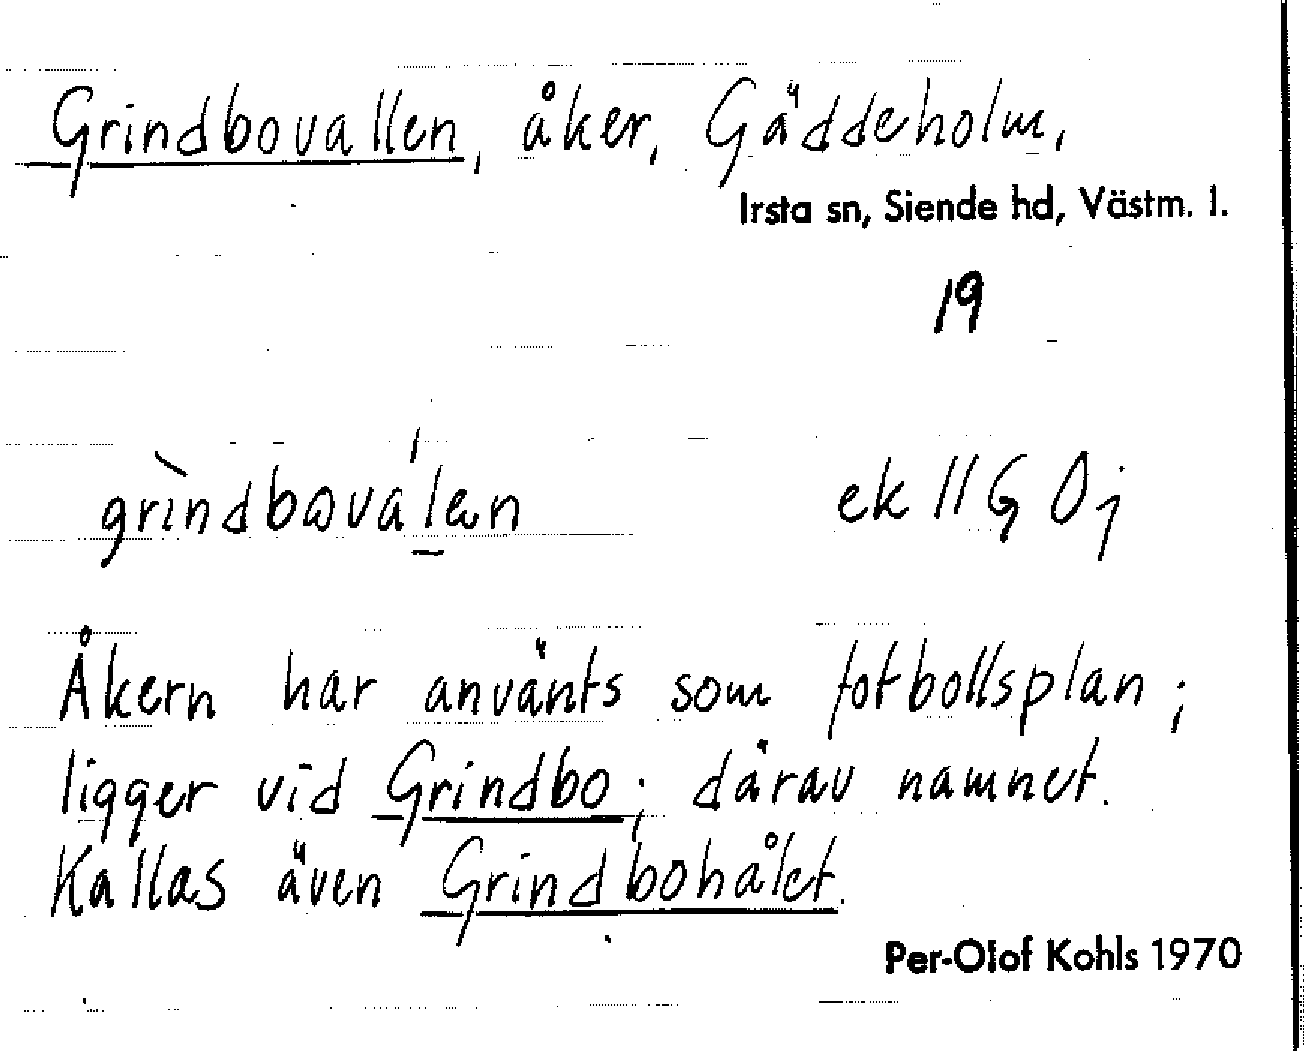 Grindbovallen, åker, Gäddeholm,
Irsta sn, Siende hd, Västm. l.
19
grìndbωvál̲æn ek llG Oj
Åkern har använts som fotbollsplan;
ligger vid Grindbo; därav namnet.
Kallas även Grindbohålet.
Per-Olof Kohls 1970